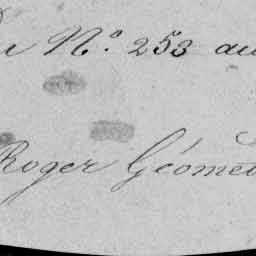 N.º 253 au
Roger Géomèt